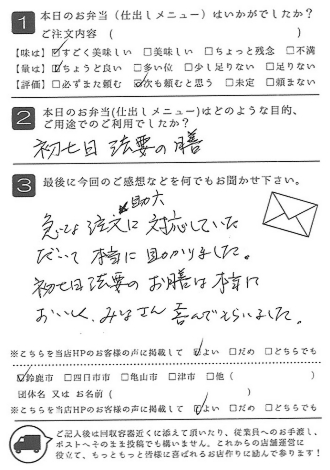 1 本日のお弁当（仕出しメニュー）はいかがでしたか？
ご注文内容（　　　）
【味は】☑すごく美味しい □美味しい □ちょっと残念 □不満
【量は】☑ちょうど良い □多い位 □少し足りない □足りない
【評価】□必ずまた頼む ☑次も頼むと思う □未定 □頼まない
2 本日のお弁当(仕出しメニュー)はどのような目的、
ご用途でのご利用でしたか？
初七日 法要の膳
3 最後に今回のご感想などを何でもお聞かせ下さい。
急な注文に対応していた
だいて 本当に助かりました。
初七日法要の お膳は本当に
おいしく、みなさん 喜んでもらいました。
※こちらを当店HPのお客様の声に掲載して ☑よい □だめ □どちらでも
☑鈴鹿市 □四日市市 □亀山市 □津市 □他（　　　）
団体名 又は お名前（　　　）
※こちらを当店HPのお客様の声に掲載して ☑よい □だめ □どちらでも
ご記入後は回収容器近くに添えて頂いたり、従業員へのお手渡し、
ポストへそのまま投稿でも構いません。これからの店舗運営に
役立て、もっともっと皆様に喜ばれるお店作りに励んで参ります！